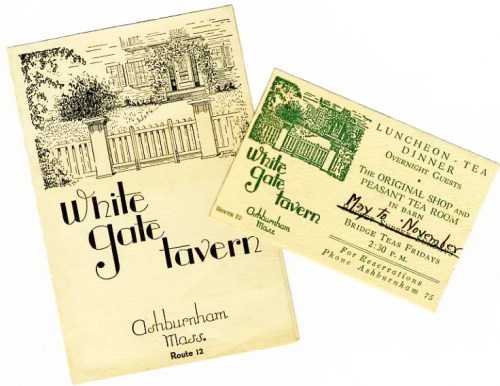 White
gate
tavern
Ashburnham
Mass.
Route 12
White
gate
tavern
Ashburnham
Mass.
Route 12
LUNCHEON - TEA
DINNER
OVERNIGHT GUESTS
THE ORIGINAL SHOP AND
PEASANT TEA ROOM
IN BARN
May to November
BRIDGE TEAS FRIDAYS
2:30 P. M.
For Reservations
Phone Ashburnham 75